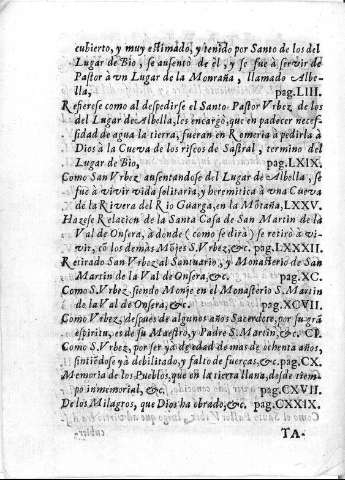 cubierto, y muy estimado, y tenido por Santo de los del
Lugar de Bio, se ausentò de èl, y se fuè à servir de
Pastor à vn Lugar de la Monraña, llamado Albe-
lla, pag. LIII.
Refierese como al despedirse el Santo Pastor Vrbez de los
del Lugar de Albella, les encargò, que en padecer neces-
sidad de agua la tierra, fueran en Romeria à pedirla à
Dios à la Cueva de los riscos de Sastral, termino del
Lugar de Bio, pag. LXIX.
Como San Vrbez ausentandose del Lugar de Albella, se
fuè à vivir vida solitaria, y heremitica à vna Cueva
de la Rivera del Rio Guarga, en la Mõtaña, LXXV.
Hazese Relacion de la Santa Casa de San Martin de la
Val de Onsera, à donde (como se dirà) se retirò à vi-
vir, cõ los demàs Mõjes S. Vrbez, &c. pag. LXXXII.
Retirado San Vrbez al Santuario, y Monasterio de San
Martin de la Val de Onsera, &c. pag. XC.
Como S. Vrbez, siendo Monje en el Monasterio S. Martin
de la Val de Onsera, &c. pag. XCVII.
Como Vrbez, despues de algunos años Sacerdote, por su grã
espiritu, es de su Maestro, y Padre S. Martin, &c. CI.
Como S. Vrbez, por ser yà de edad de mas de ochenta años,
sintiẽdose yà debilitado, y falto de fuerças, &c. pag. CX.
Memoria de los Pueblos, que en la tierra llana, desde tiem-
po inmemorial, &c. pag. CXVII.
De los Milagros, que Dios ha obrado, &c. pag. CXXIX.
TA-